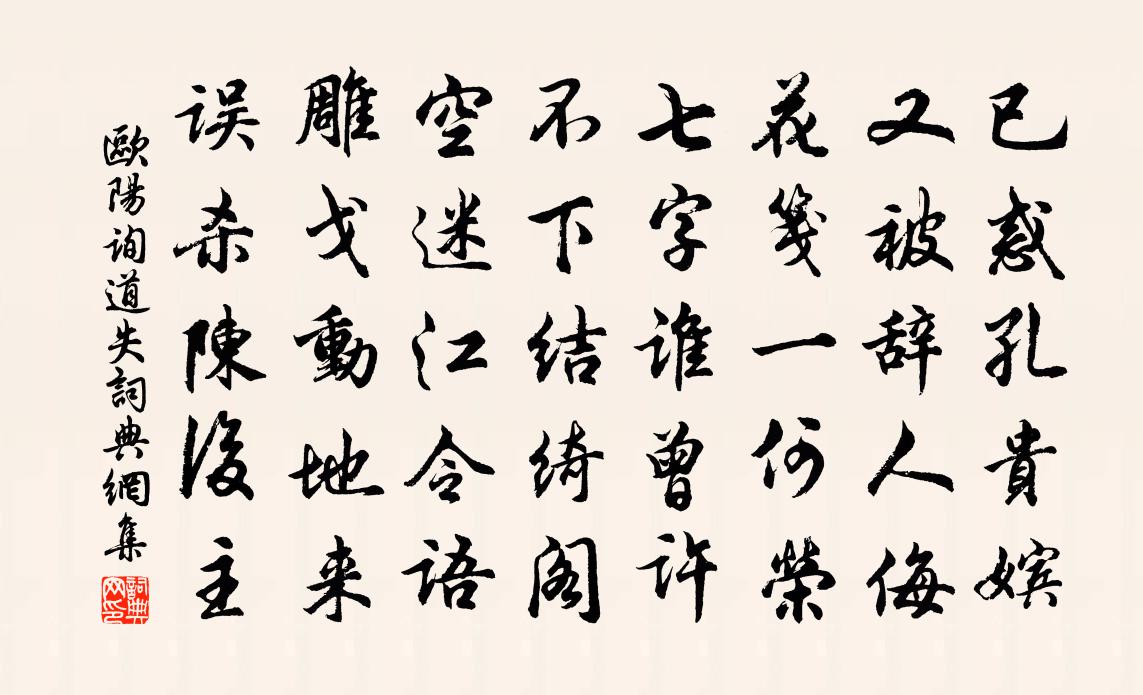 已惑孔貴嬪
又被辞人侮
花箋一何榮
七字谁曾許
不下结绮阁
空迷江令语
雕戈動地来
误杀陳後主
歐陽询道失詞典網集
詞典网印